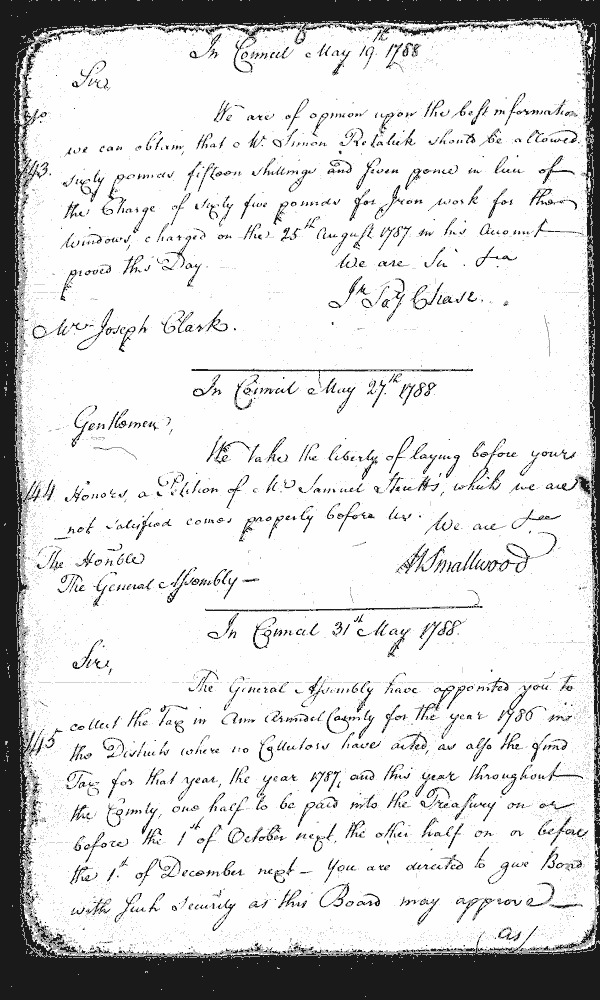 In Council May 19.th 1788
Sir,
No.
We are of opinion upon the best information
we can obtain, that Mr. Simon Retalick should be allowed
143.
sixty pounds fifteen shillings and seven pence in lieu of
the Charge of sixty five pounds for Iron work for the
windows, charged on the 25th August 1787 in his Account
proved this Day.
We are Sir &ca
Jr. Toy Chase.
Mr. Joseph Clark.
In Council May 27.th 1788
Gentlemen,
We take the liberty of laying before your
144 Honors, a Petition of Mr. Samuel which we are
not satisfied comes properly before us. We are &ca
The Honble
W Smallwood
The General Assembly
In Council 31st May 1788.
Sir,
The General Assembly have appointed you to
collect the Tax in Ann Arundel County for the year 1786 in
145 the Districts where no Collectors have acted, as also the fund
Tax for that year, the year 1787, and this year throughout
the County, one half to be paid into the Treasury on or
before the 1st of October next, the other half on or before
the 1.st of December next – You are directed to give Bond
with such Security as this Board may approve
(as/